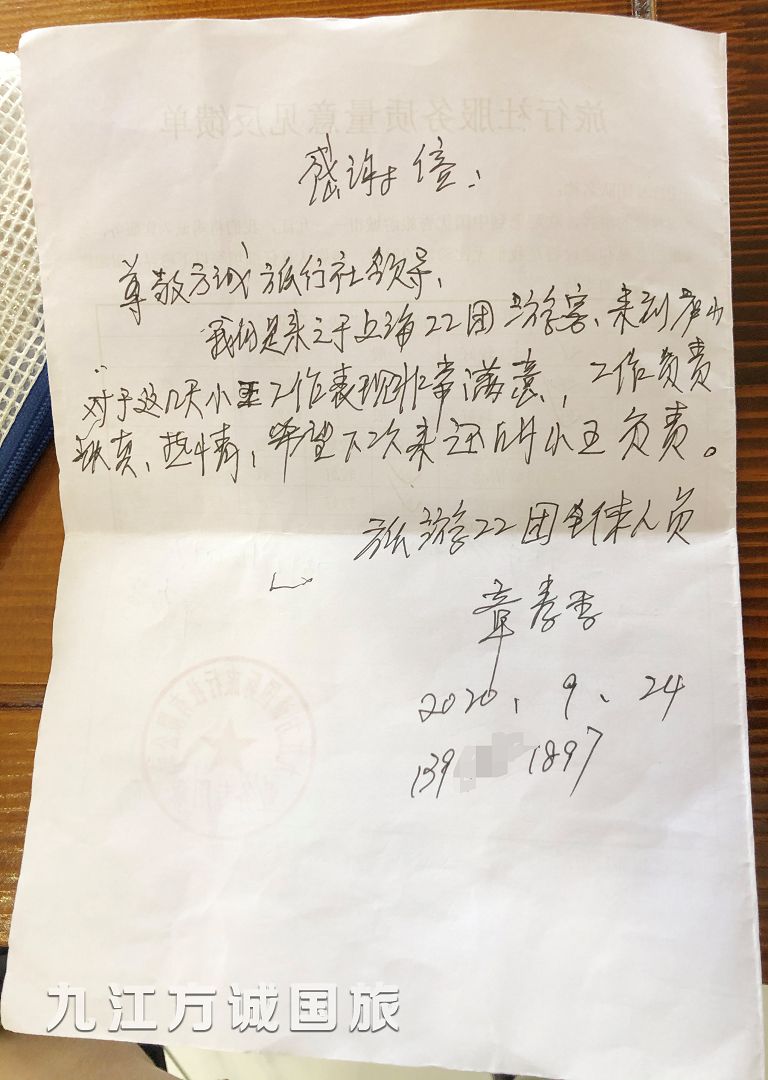 旅行社服务质量意见反馈单
感谢信:
尊敬方诚旅行社领导、
我们是来之于上海22团游客、来到庐山
对于这几天小王工作表现非常满意，工作负责
认真、热情，希望下次来还由小王负责。
旅游22团全体人员
章秀
2020、9、24
139 1897
九江方诚国旅